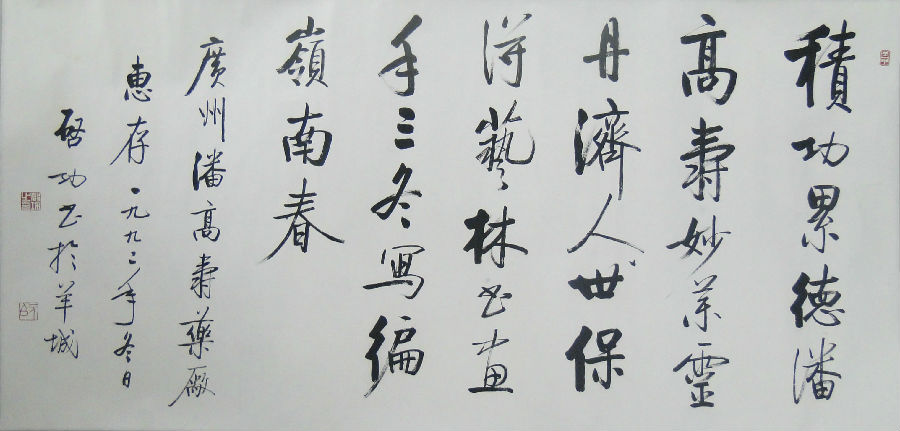 積功累德潘
高壽妙藥靈
丹濟人世保
得藝林书画
手三冬寫徧
嶺南春
廣州潘高壽藥厰
惠存一九九二年冬日
啓功书於羊城